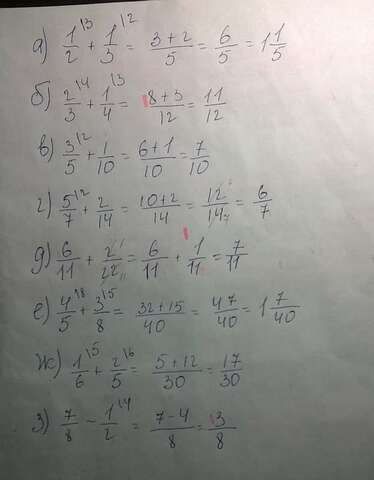 а) 1\3/2 + 1\2/3 = 3+2/5 = 6/5 = 1 1/5
б) 2\4/3 + 1\3/4 = 8+3/12 = 11/12
в) 3\2/5 + 1/10 = 6+1/10 = 7/10
г) 5\2/7 + 2/14 = 10+2/14 = 12/14 7 = 6/7
д) 6/11 + 2/22 11 = 6/11 + 1/11 = 7/11
е) 4\8/5 + 3\5/8 = 32+15/40 = 47/40 = 1 7/40
ж) 1\5/6 + 2\6/5 = 5+12/30 = 17/30
з) 7/8 - 1\4/2 = 7-4/8 = 3/8